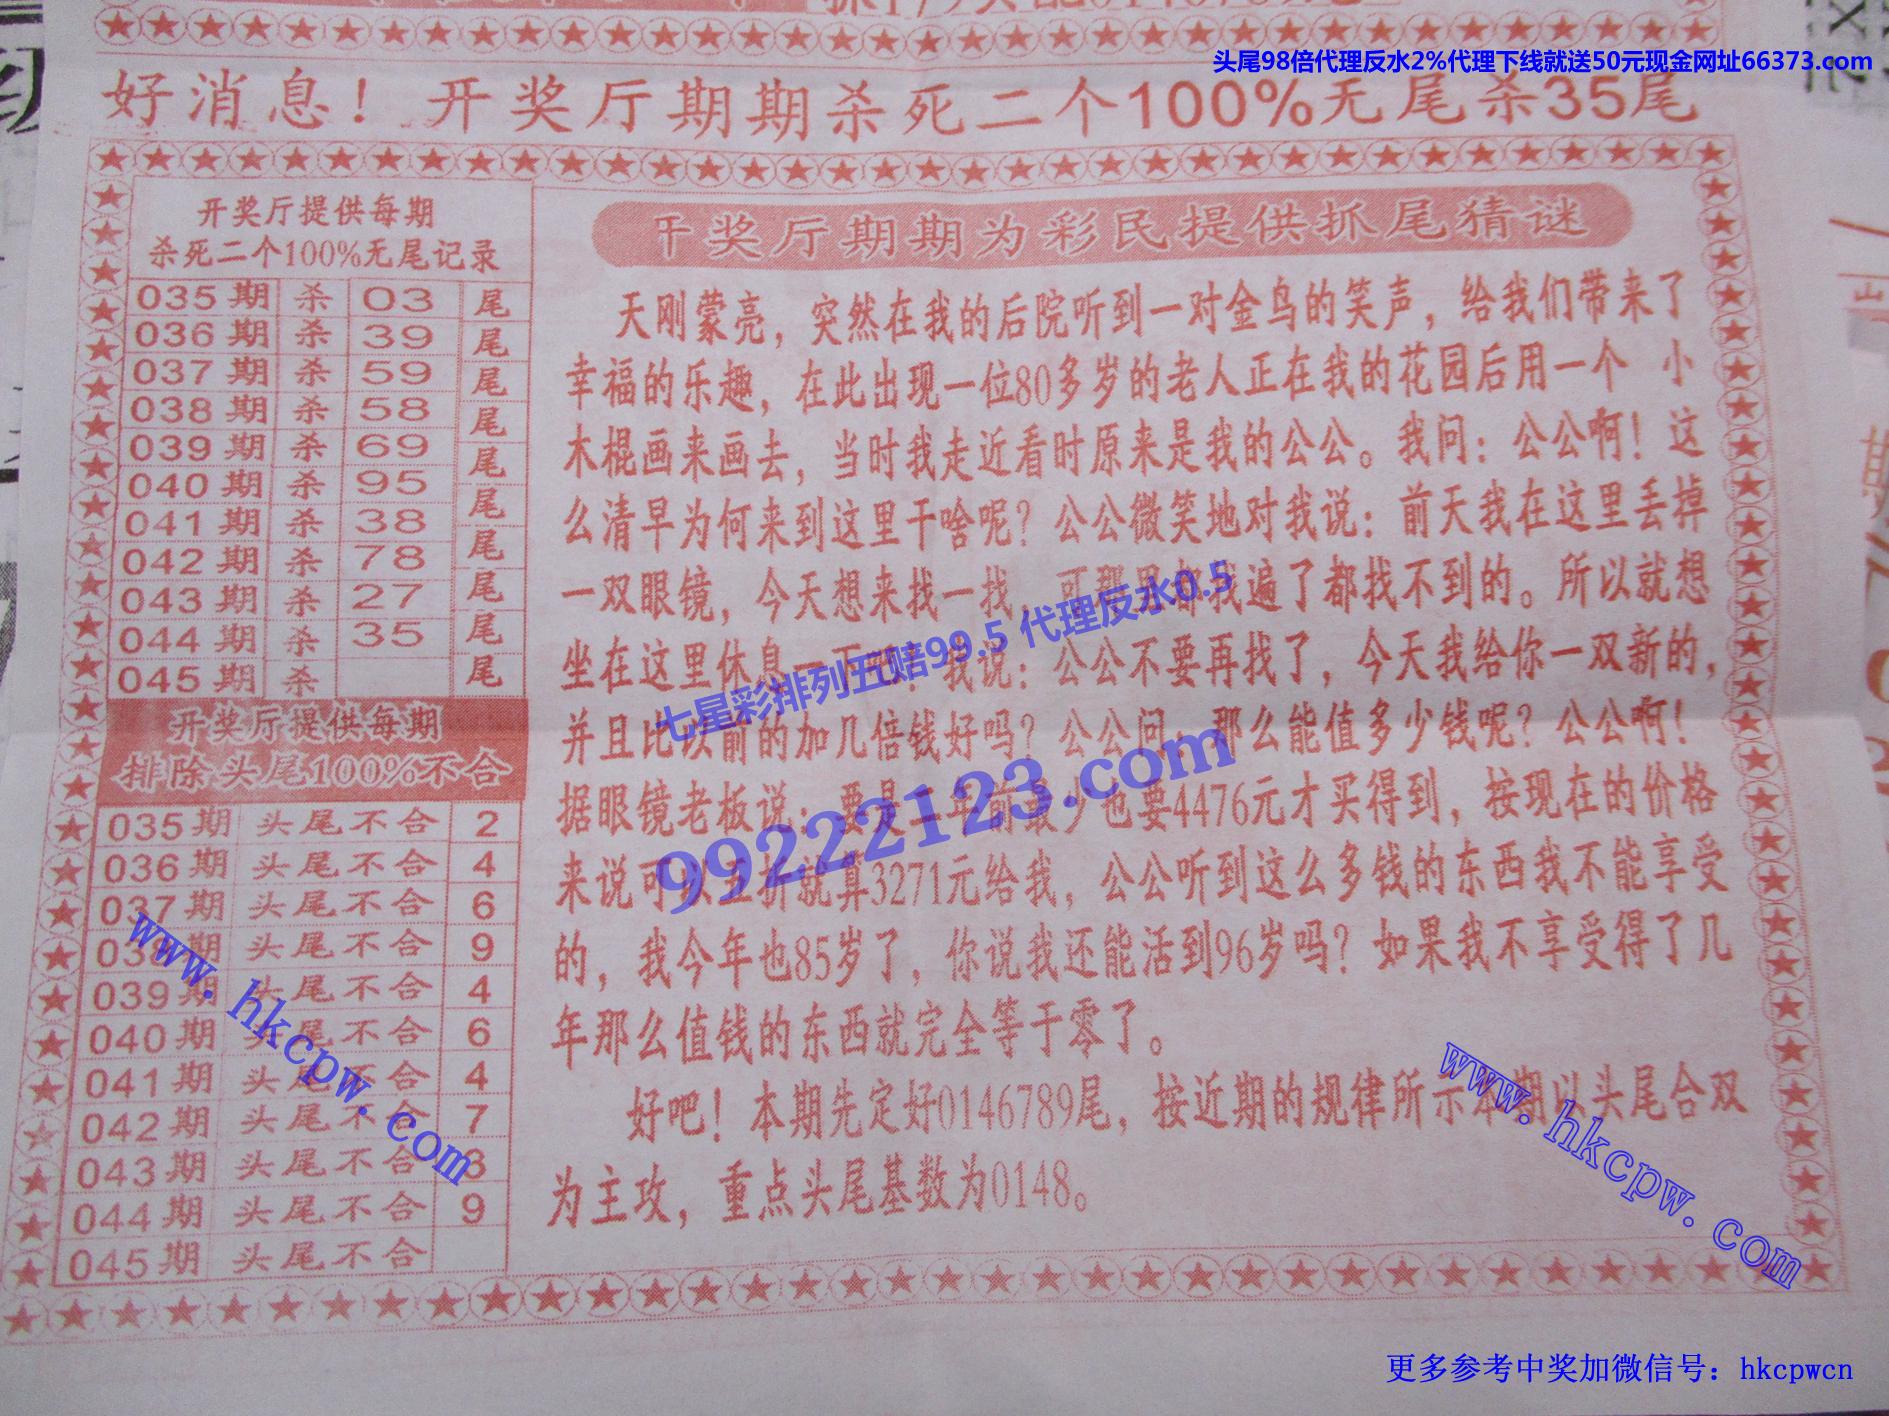 头尾98倍代理反水2%代理下线就送50元现金网址66373.com
好消息！开奖厅期期杀死二个100%无尾杀35尾
开奖厅提供每期
杀死二个100%无尾记录
035期 杀 03 尾
036期 杀 39 尾
037期 杀 59 尾
038期 杀 58 尾
039期 杀 69 尾
040期 杀 95 尾
041期 杀 38 尾
042期 杀 78 尾
043期 杀 27 尾
044期 杀 35 尾
045期 杀 尾
开奖厅提供每期
排除头尾100%不合
035期 头尾不合 2
036期 头尾不合 4
037期 头尾不合 6
038期 头尾不合 9
039期 头尾不合 4
040期 头尾不合 6
041期 头尾不合 4
042期 头尾不合 7
043期 头尾不合
044期 头尾不合 9
045期 头尾不合
开奖厅期期为彩民提供抓尾猜谜
天刚蒙亮，突然在我的后院听到一对金鸟的笑声，给我们带来了
幸福的乐趣，在此出现一位80多岁的老人正在我的花园后用一个 小
木棍画来画去，当时我走近看时原来是我的公公。我问：公公啊！这
么清早为何来到这里干啥呢？公公微笑地对我说：前天我在这里丢掉
一双眼镜，今天想来找一找，可那里都找遍了都找不到的。所以就想
坐在这里休息一下 我说：公公不要再找了，今天我给你一双新的，
并且比以前的加几倍钱好吗？公公问：那么能值多少钱呢？公公啊！
据眼镜老板说：要是 年前最少也要4476元才买得到，按现在的价格
来说可以 折就算3271元给我，公公听到这么多钱的东西我不能享受
的，我今年也85岁了，你说我还能活到96岁吗？如果我不享受得了几
年那么值钱的东西就完全等于零了。
好吧！本期先定好0146789尾，按近期的规律所示本期以头尾合双
为主攻，重点头尾基数为0148。
七星彩排列五赔99.5 代理反水0.5
99222123.com
www.hkcpw.com
www.hkcpw.com
更多参考中奖加微信号：hkcpwcn